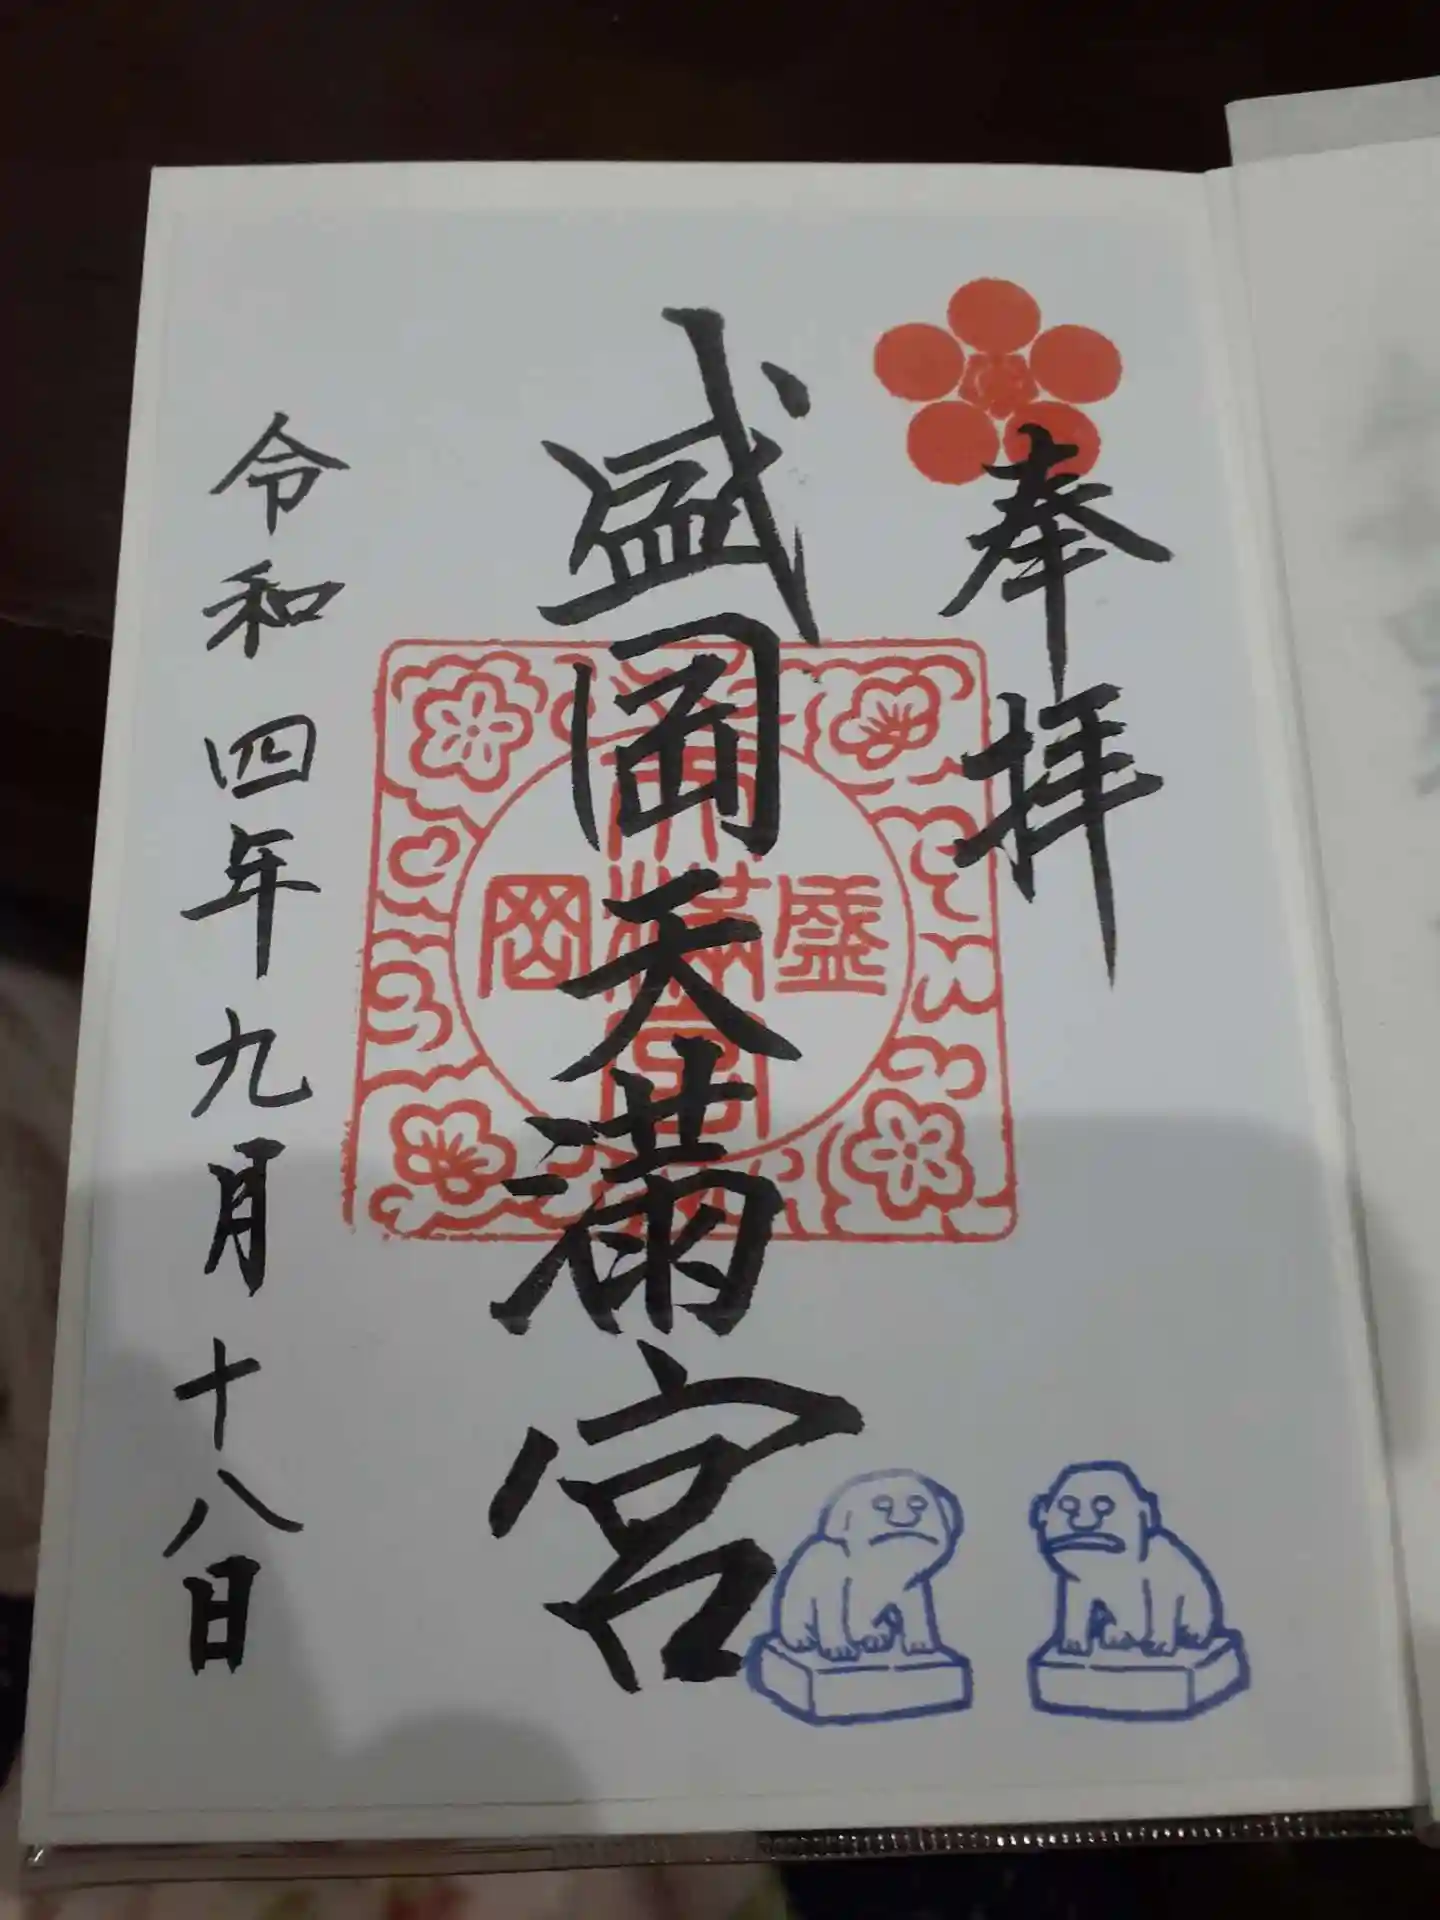 奉拝
盛岡天満宮
盛岡
天満宮
令和四年九月十八日